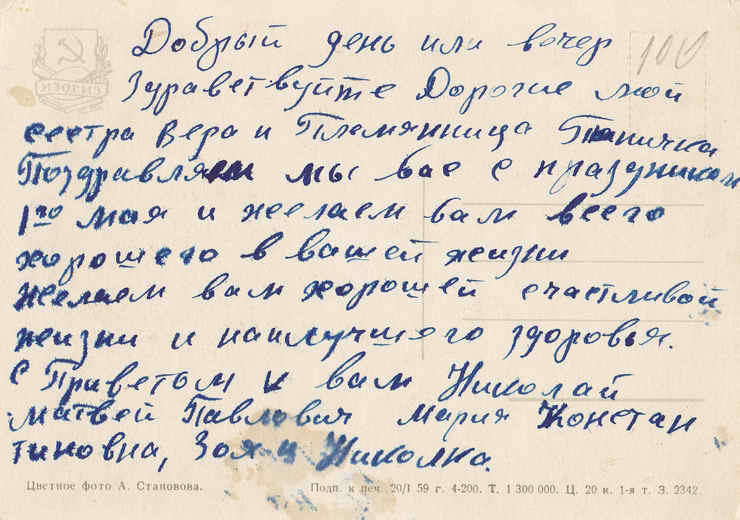 Добрый день или вечер
100
ИЗОГИЗ
Здравствуйте Дорогие мой
сестра Вера и Племянница Таничка
Поздравляем мы вас с праздником
1го мая и желаем вам всего
хорошего в вашей жизни
желаем вам хорошей счастливой
жизни и наилучшего здоровья.
С Приветом к вам Николай
матвей Павлович мария Констан
тиновна, Зоя и Николка.
Цветное фото А. Становова.
Подп. к печ. 20/I 59 г. 4-200. Т. 1 300 000. Ц. 20 к. 1-я т. З. 2342.